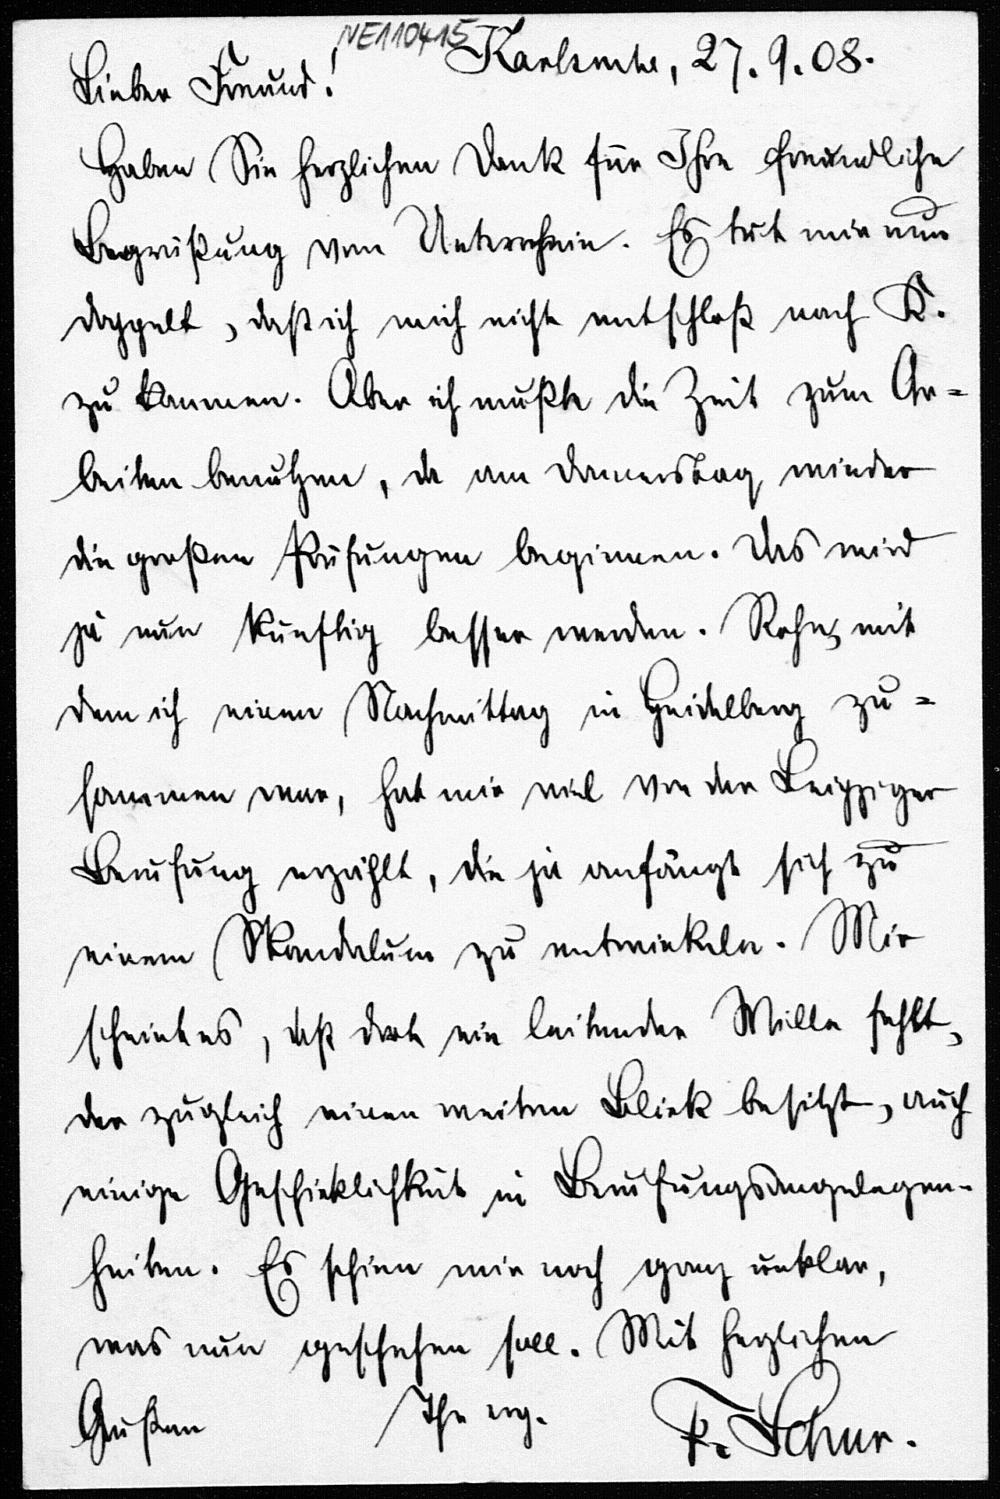 NE110415
Karlsruhe, 27.9.08.
Lieber Freund!
Haben Sie herzlichen Dank für Ihre freundliche
Begrüßung vom Unterrhein. Es tut mir nun
doppelt, daß ich mich nicht entschloß nach K.
zu kommen. Aber ich mußte die Zeit zum Ar-
beiten benutzen, da am Donnerstag wieder
die großen Prüfungen beginnen. Das wird
ja nun künftig besser werden. Rohn, mit
dem ich einen Nachmittag in Heidelberg zu-
sammen war, hat mir viel von der Leipziger
Berufung erzählt, die ja anfängt sich zu
einem Skandalum zu entwickeln. Mir
scheint es, daß dort ein leitender Wille fehlt,
der zugleich einen weiten Blick besitzt, auch
einige Geschicklichkeit in Berufungsangelegen-
heiten. Es schien mir noch ganz unklar,
was nun geschehen soll. Mit herzlichen
Grüßen Ihr erg.
F. Schur.